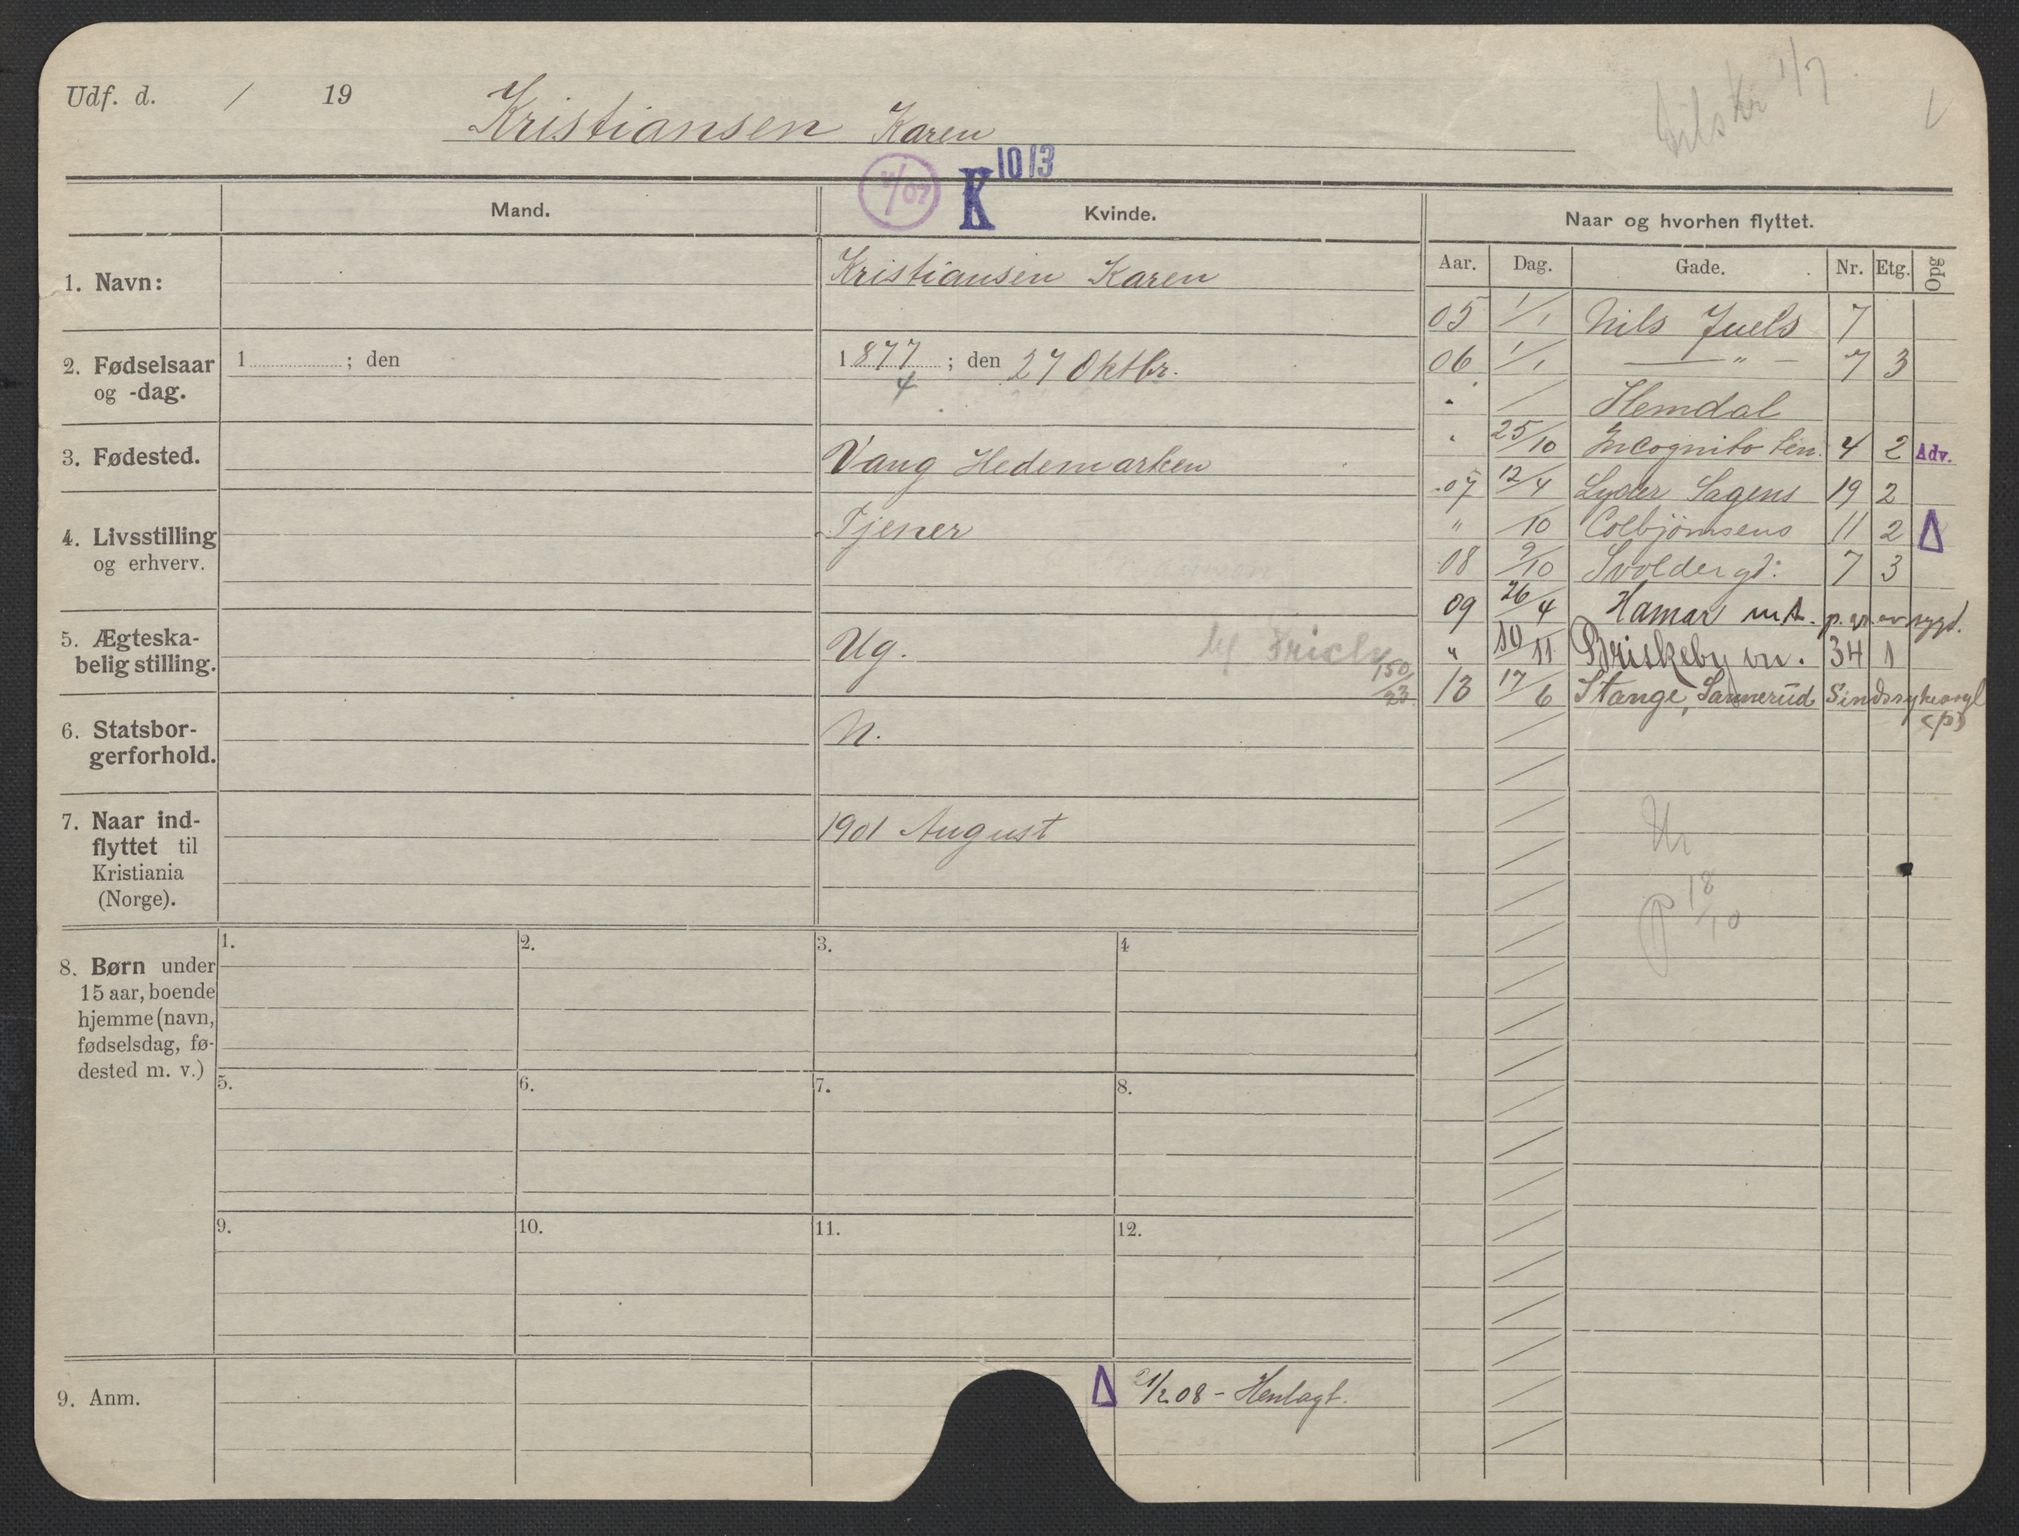 Udf. d. / 19
Kristiansen Karen
1/7
K 1013
Mand.
Kvinde.
Naar og hvorhen flyttet.
Aar. Dag. Gade. Nr. Etg. Opg
1. Navn:
Kristiansen Karen
2. Fødselsaar og -dag.
1 ; den
1877 ; den 27 Oktbr.
4
3. Fødested.
Vang Hedemarken
4. Livsstilling og erhverv.
Tjener
5. Ægteska-
belig stilling.
Ug.
150/23
6. Statsbor-
gerforhold.
N.
7. Naar ind-
flyttet til
Kristiania
(Norge).
1901 August
05 1/1 Nils Juels 7
06 1/1 — " — 7 3
Hemdal
25/10 Incognito 4 2 Adv.
07 12/4 Lyder Sagens 19 2
" /10 Colbjørnsens 11 2 Δ
08 9/10 Svolder gd. 7 3
09 26/4 Hamar
" 10/11 Briskeby vn. 34 1
13 17/6 Stange, Sannerud Sindssykeasyl
(p)
18/10
8. Børn under
15 aar, boende
hjemme (navn,
fødselsdag, fø-
dested m. v.)
1. 2. 3. 4
5. 6. 7. 8.
9. 10. 11. 12.
9. Anm.
Δ 21/2 08 - Henlagt.